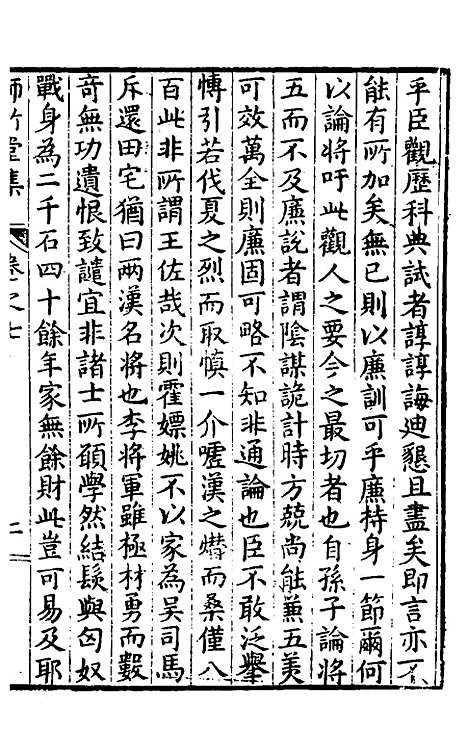 乎臣觀歷科典試者諄諄誨迪懇且盡矣即言亦
能有所加矣無已則以廉訓可乎廉持身一節爾何
以論將吁此觀人之要今之最切者也自孫子論將
五而不及廉說者謂陰謀詭計時方兢尚能兼五美
可效萬全則廉固可略不知非通論也臣不敢泛舉
愽引若伐夏之烈而取慎一介噓漢之燼而桑僅八
百此非所謂王佐哉次則霍嫖姚不以家為吳司馬
斥還田宅猶曰兩漢名將也李將軍雖極材勇而數
竒無功遺恨致譴宜非諸士所願學然結髮與匈奴
戰身為二千石四十餘年家無餘財此豈可易及耶
師竹堂集
卷之七
二